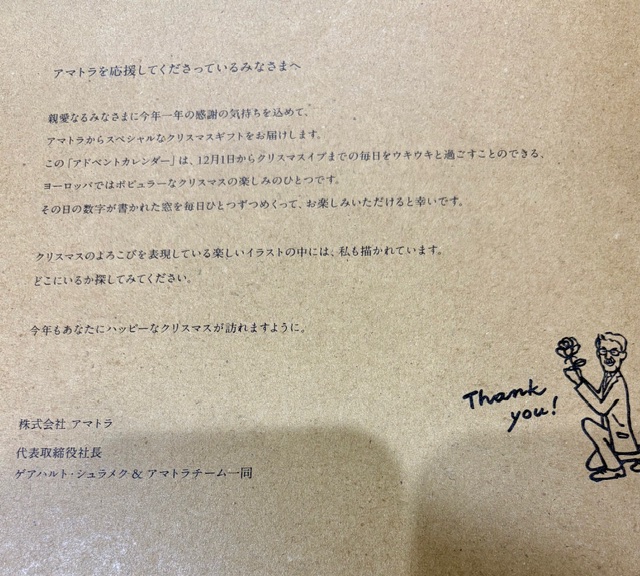 アマトラを応援してくださっているみなさまへ
親愛なるみなさまに今年一年の感謝の気持ちを込めて、
アマトラからスペシャルなクリスマスギフトをお届けします。
この「アドベントカレンダー」は、12月1日からクリスマスイブまでの毎日をウキウキと過ごすことのできる、
ヨーロッパではポピュラーなクリスマスの楽しみのひとつです。
その日の数字が書かれた窓を毎日ひとつずつめくって、お楽しみいただけると幸いです。
クリスマスのよろこびを表現している楽しいイラストの中には、私も描かれています。
どこにいるか探してみてください。
今年もあなたにハッピーなクリスマスが訪れますように。
Thank
you!
株式会社 アマトラ
代表取締役社長
ゲアハルト・シュラメク & アマトラチーム一同